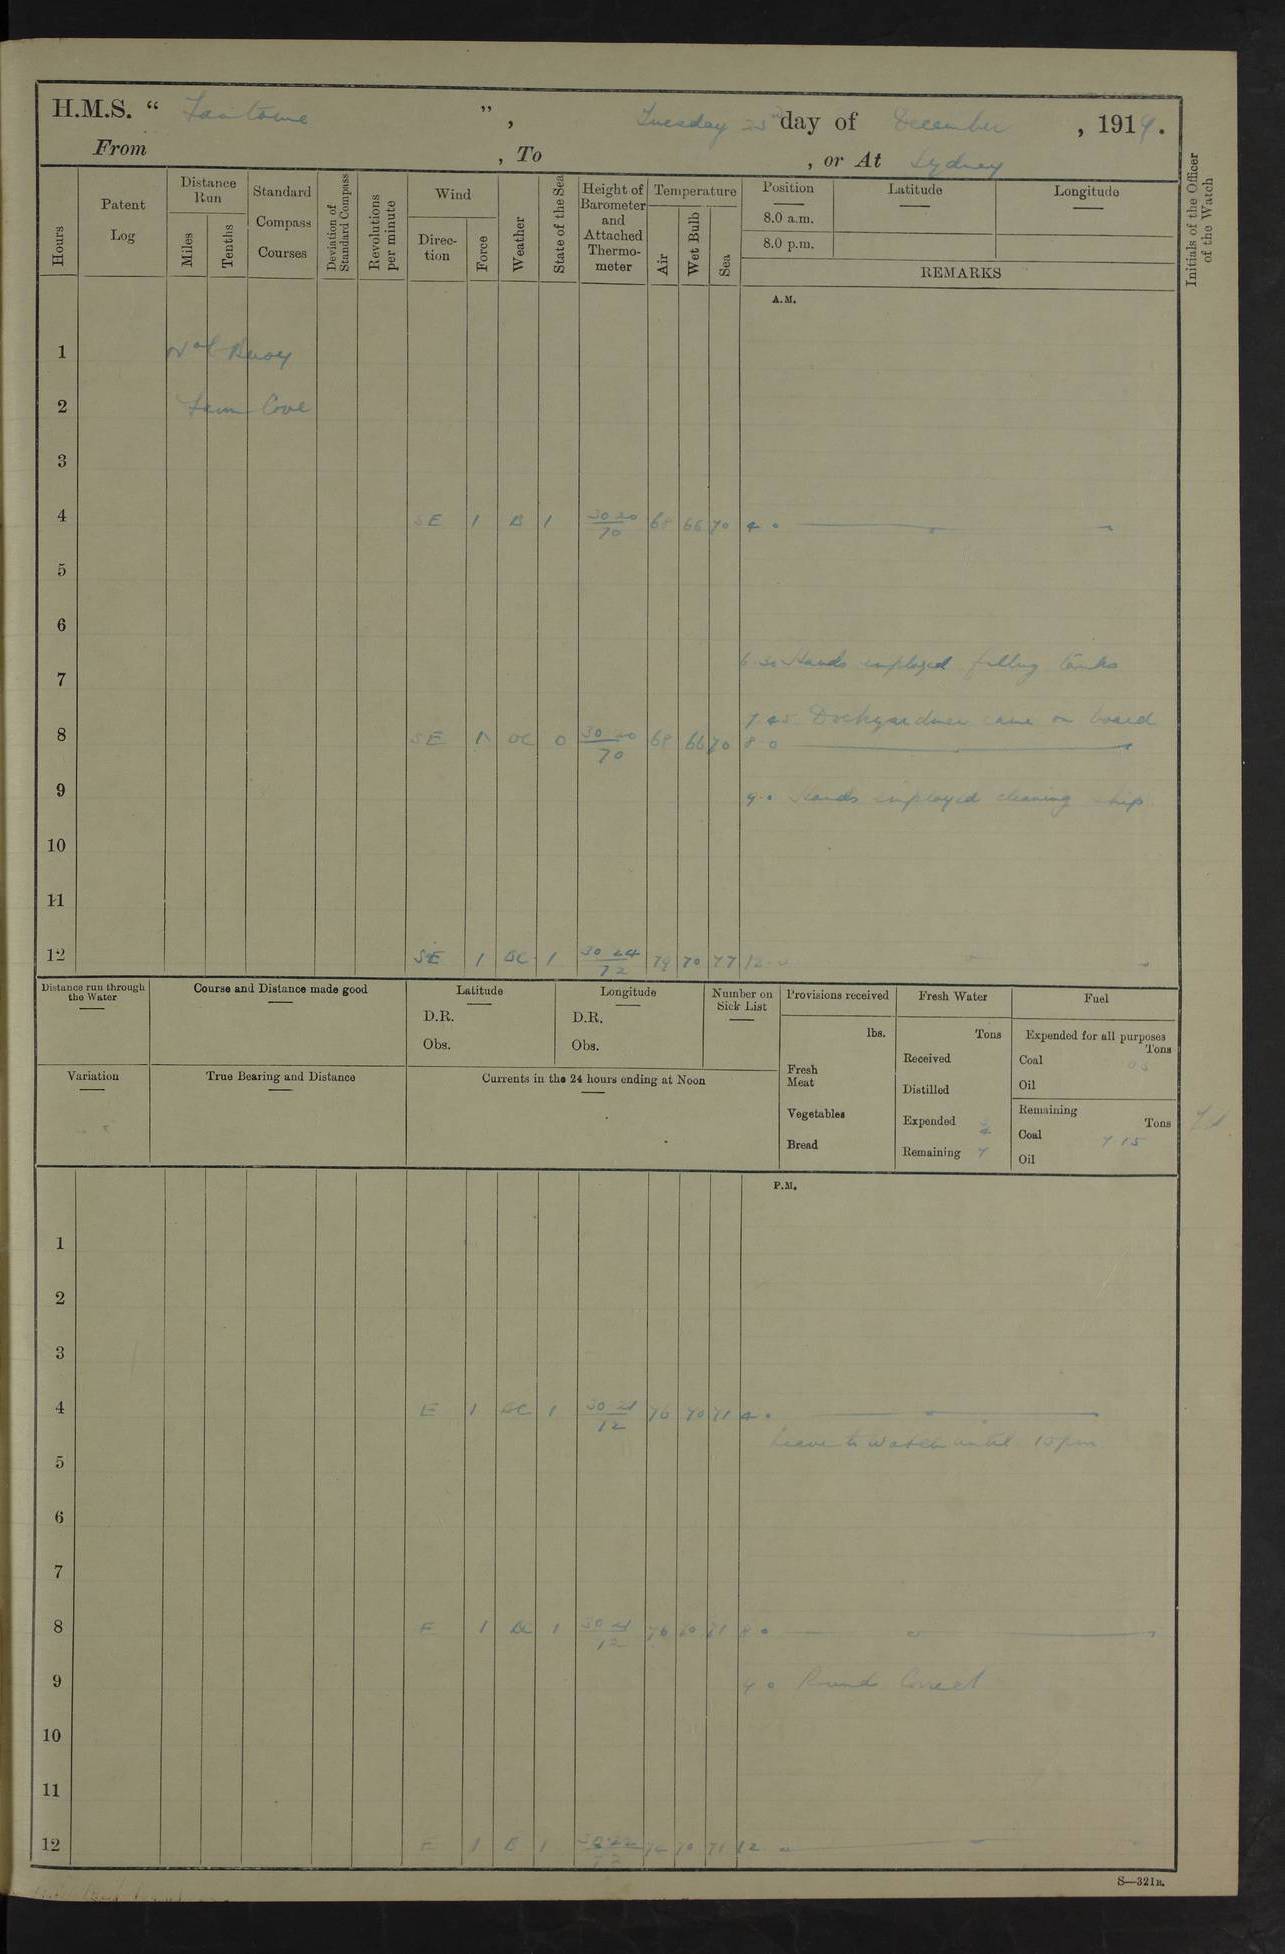 H.M.S. “ Fantome ”, Tuesday 23rd day of December, 1919.
From , To , or At Sydney
Hours
Patent Log
Distance Run
Miles
Tenths
Standard Compass Courses
Deviation of Standard Compass
Revolutions per minute
Wind
Direction
Force
Weather
State of the Sea
Height of Barometer and Attached Thermometer
Temperature
Air
Wet Bulb
Sea
Position
8.0 a.m.
8.0 p.m.
Latitude
Longitude
REMARKS
Initials of the Officer of the Watch
A.M.
1 Buoy
2 Farm Cove
3
4 SE 1 B 1 30 20 / 70 68 66 70 4 0
5
6
6.30 Hands employed filling tanks
7
7 45 Dockyard came on board
8 SE 1 BC 0 30 20 / 70 68 66 70 8 0
9 9.0 Hands employed cleaning ship
10
11
12 SE 1 BC 1 30 24 / 72 79 70 77 12 0
Distance run through the Water
Course and Distance made good
Latitude
D.R.
Obs.
Longitude
D.R.
Obs.
Number on Sick List
Provisions received
lbs.
Fresh Meat
Vegetables
Bread
Fresh Water
Tons
Received
Distilled
Expended
Remaining
Fuel
Expended for all purposes
Tons
Coal
Oil
Remaining
Tons
Coal
Oil
Variation
True Bearing and Distance
Currents in the 24 hours ending at Noon
P.M.
1
2
3
4 E 1 BC 1 30 21 / 72 76 70 71 4 0
Leave to watch until 10 pm
5
6
7
8 E 1 BC 1 30 21 / 72 76 8 0
9 9 0 Rounds Correct
10
11
12 E 1 B 1 70 71 12 0
S—321B.